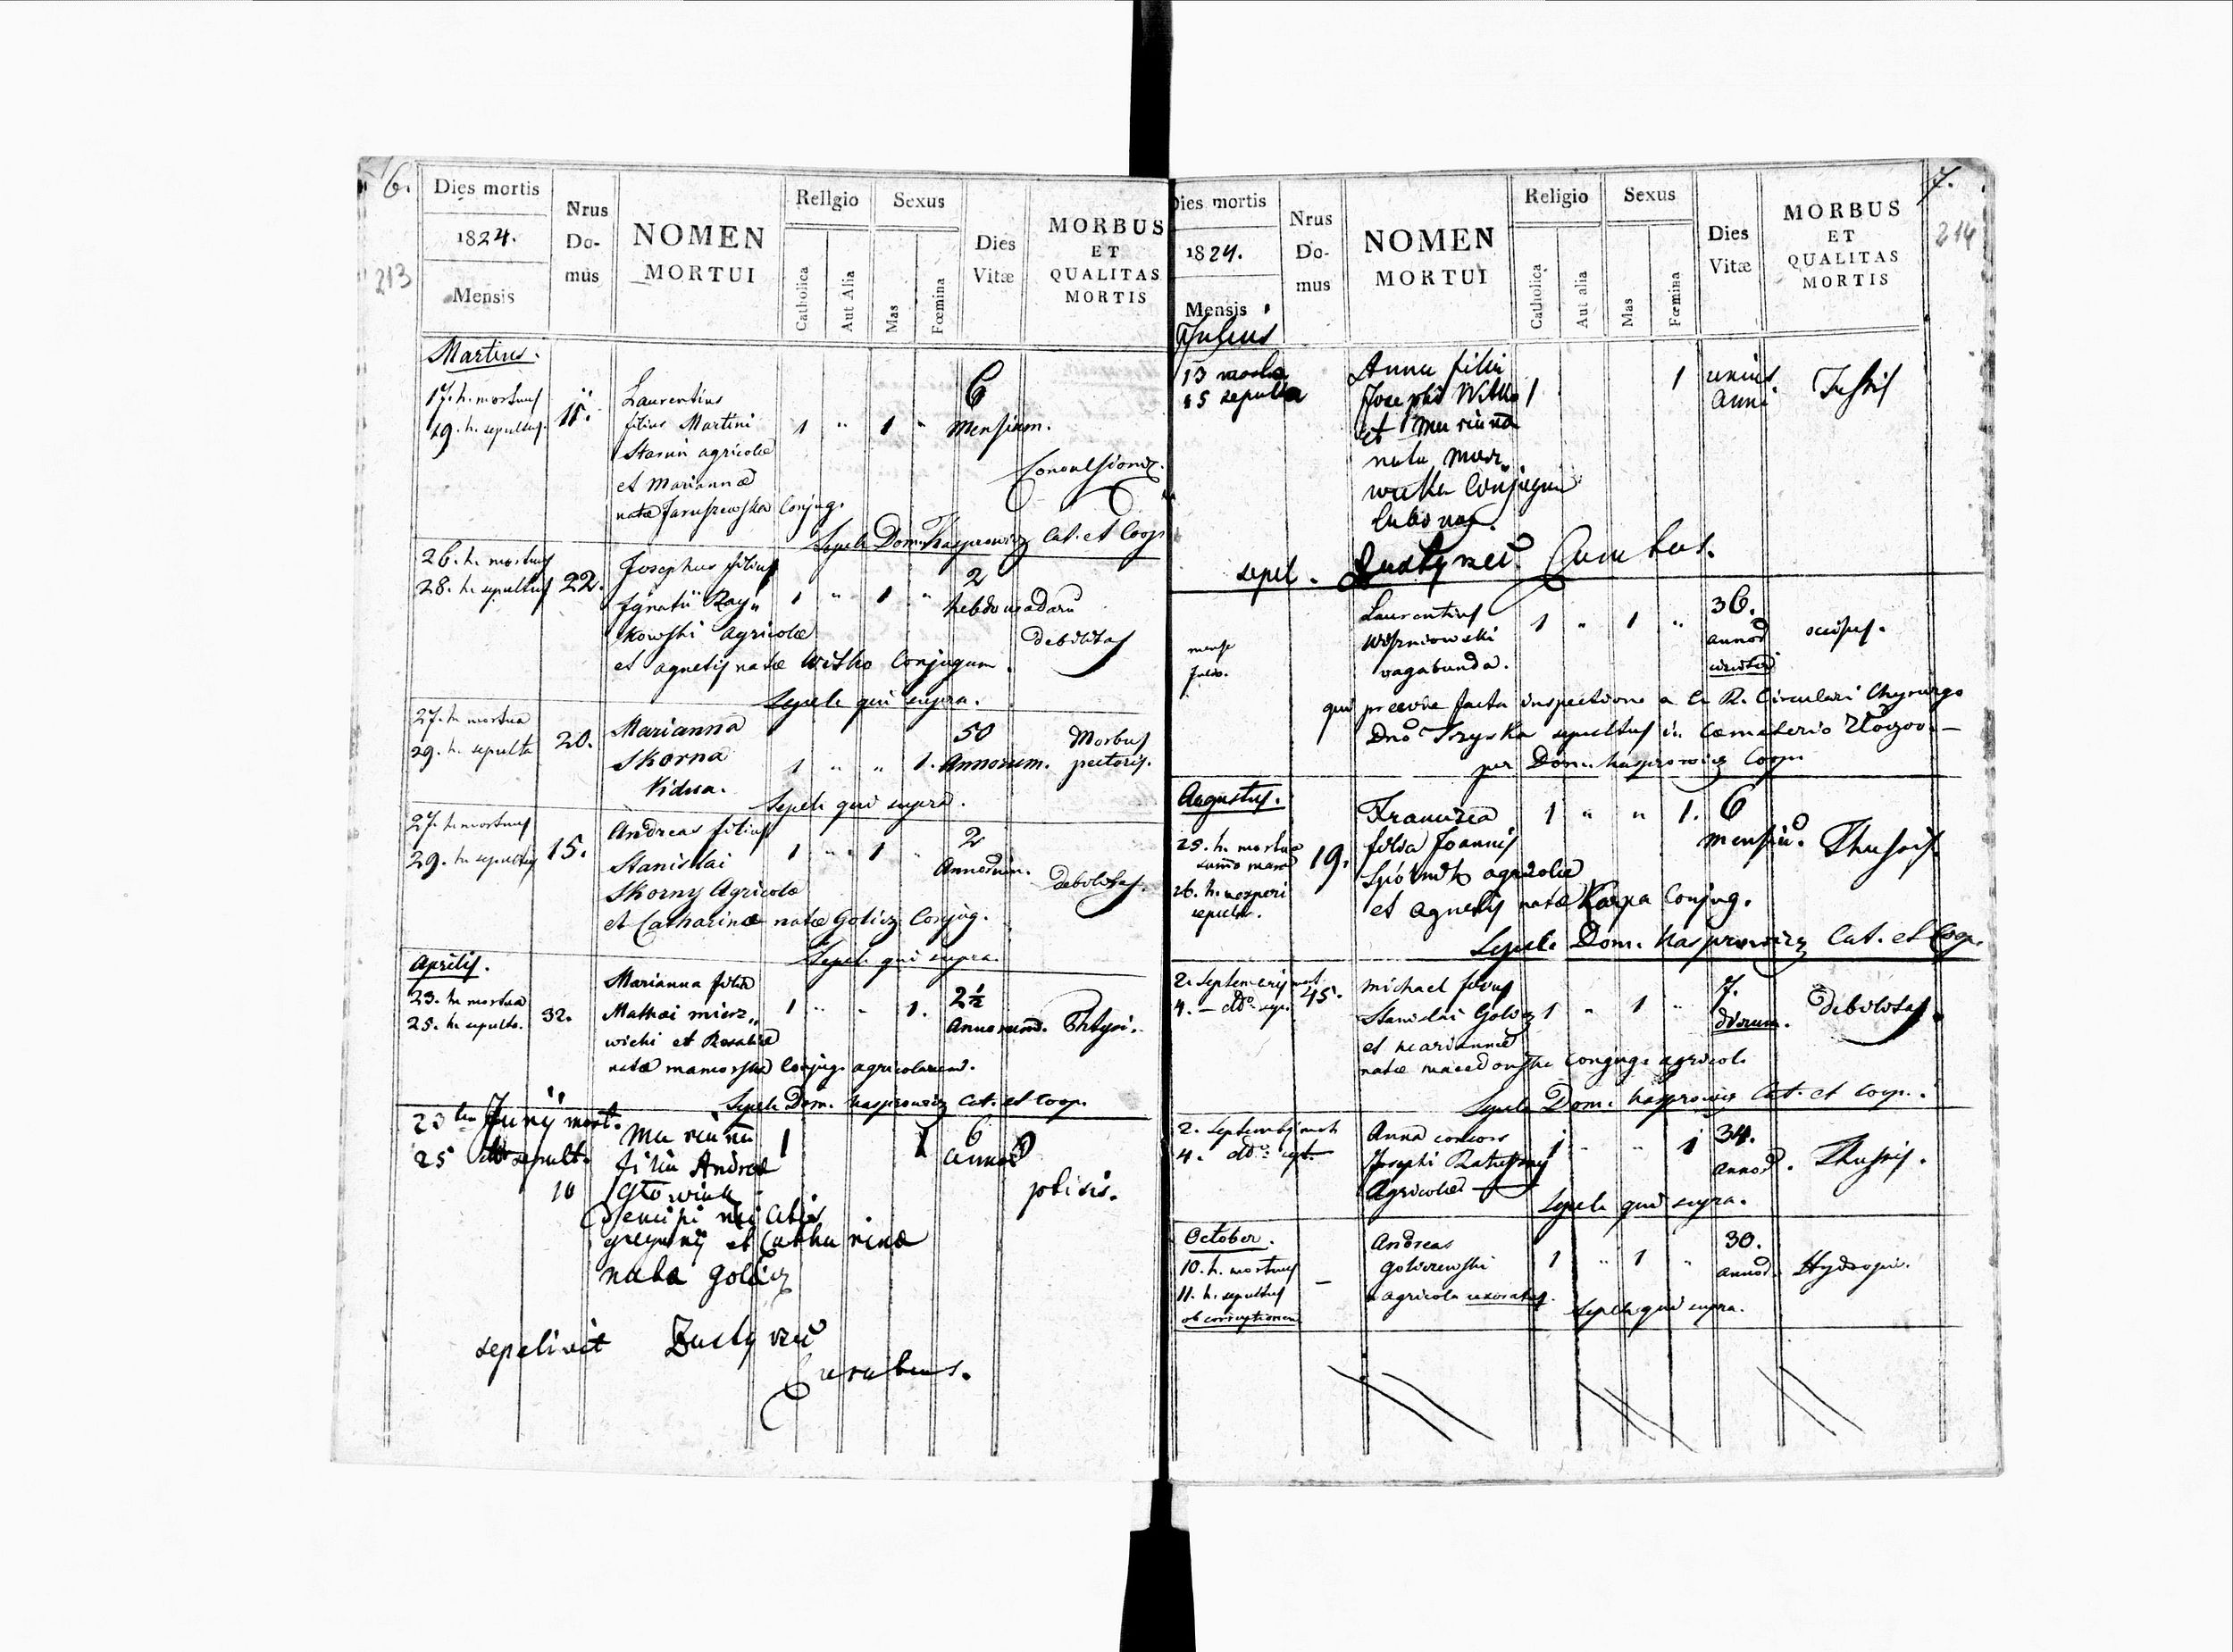 6.
213
Dies mortis
1824.
Mensis
Nrus
Do-
mus
NOMEN
MORTUI
Religio
Catholica
Aut Alia
Sexus
Mas
Fœmina
Dies
Vitæ
MORBUS
ET
QUALITAS
MORTIS
Martius.
17. h. mortuus
19. h. sepultus.
11.
Laurentius
filius Martini
agricolæ
et Mariannæ
natæ Conjug.
1 " 1 "
6
Mensium.
Sepel. Dom. Kasprowicz Cat. et Coop.
26. h. mortuus
28. h. sepultus
22.
Josephus filius
Ignatii Ray„
kowski Agricolæ
et agnetis natæ Witko Conjugum.
1 " 1 "
2
hebdomadarū
debilitas
Sepel. qui supra.
27. h. mortua
29. h. sepulta
20.
Marianna
Skorna
Vidua.
1 " " 1.
50
Annorum.
Morbus
pectoris.
Sepel. qui supra.
27. h. mortuus
29. h. sepultus
15.
Andreas filius
Stanislai
Skorny Agricolæ
et Catharinæ natæ Golicz Conjug.
1 " 1 "
2
Annorum.
debilitas.
Sepel. qui supra.
Aprilis.
23. h. mortua
25. h. sepulta.
32.
Marianna filia
Mathæi mierz„
wicki et Rosaliæ
natæ Conjug. agricolarum.
1 " " 1.
2½
Annorum.
Phtysi.
Sepel. Dom. Kasprowicz Cat. et Coop.
23 Junÿ mort.
25 sepult.
10
Marianna
filia Andreæ
et Catharinæ
nata Golicz
1 1
6
annor
phtisis.
sepelivit
Curatus.
7.
214
Dies mortis
1824.
Mensis
Nrus
Do-
mus
NOMEN
MORTUI
Religio
Catholica
Aut alia
Sexus
Mas
Fœmina
Dies
Vitæ
MORBUS
ET
QUALITAS
MORTIS
Julius
13 mortua
15 sepulta
Anna filia
Josephi Witko
et Marianna
nata
Conjugum
1 1
unius
anni
Tussis
sepel. Curatus.
mense
Julio.
Laurentius
Wiszniowski
vagabunda.
1 " 1 "
36.
annor
occisus.
qui prævia facta inspectione a C. R. Circulari Chyrurgo
sepultus in Cæmeterio
per Dom. Kasprowicz Coop.
Augustus.
25. h. mortua
26. h. vesperi
sepulta.
19.
Francisca
filia Joannis
agricolæ
et Agnetis natæ Karpa Conjug.
1 " " 1.
6
mensiu.
Thussis.
Sepel. Dom. Kasprowicz Cat. et Coop.
2. Septembris mort.
4. - dto sep.
45.
Michael filius
Stanislai Golicz
et Mariannæ
natæ Conjug. agricol.
1 " 1 "
7.
dierum.
debilitas.
Sepel. Dom. Kasprowicz Cat. et Coop.
2. Septembris mort.
4. dto sepult.
Anna consors
Josephi
Agricolæ
1 " " 1
34.
annor.
Thussis.
Sepel. qui supra.
October.
10. h. mortuus
11. h. sepultus
ob corruptionem
-
Andreas
Goliszewski
agricola uxoratus.
1 " 1 "
30.
annor.
Hydropis.
Sepel. qui supra.